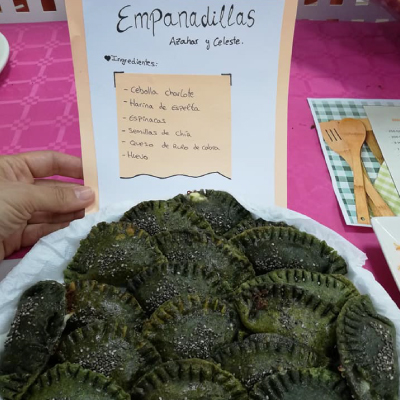 Empanadillas
Azahar y Celeste.
♥Ingredientes:
- Cebolla charlote
- Harina de Espelta
- Espinacas
- Semillas de Chía
- Queso de Rulo de cabra
- Huevo